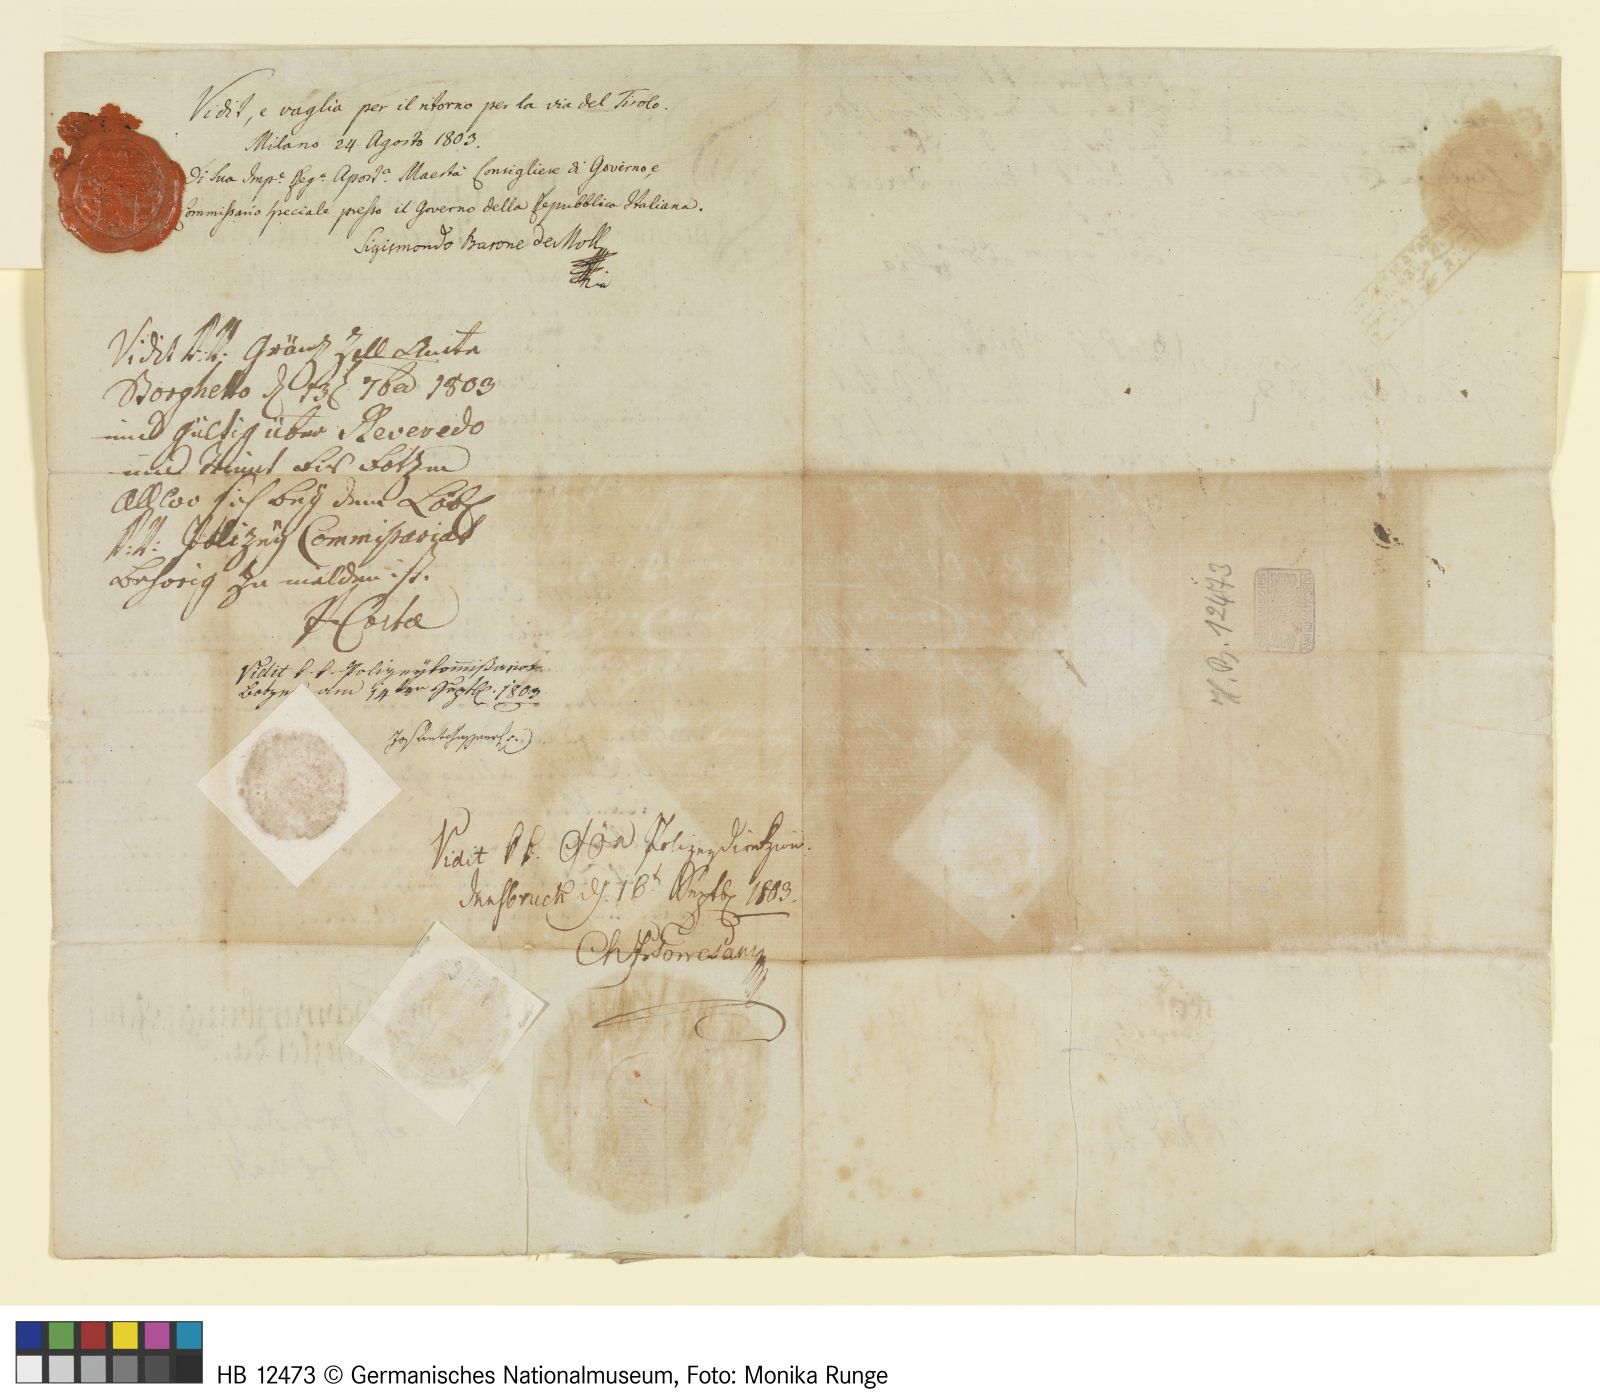 Vidit, e vaglia per il ritorno per la via del Tirolo.
Milano 24 Agosto 1803.
Di Sua Imp.e Reg.a Apost.a Maestà Consigliere di Governo, e
Commissario speciale presso il Governo della Repubblica Italiana.
Sigismondo Barone de Moll
Vidit K: K: Gränz Zoll Amts
Borghetto d 13 7ber 1803
und gültig über Roveredo
und Trient bis Botzen
allwo sich bey dem Löbl
K: K: Polizey Commissariat
behörig zu melden ist.
Costa
Vidit k. k. Polizeykommissariat
Botzen am 14ten Septbr. 1803
Vidit k k. Polizeydirekzion.
Innsbruck d. 16t Septbr 1803.
Torresani
H. B. 12473
HB 12473 © Germanisches Nationalmuseum, Foto: Monika Runge